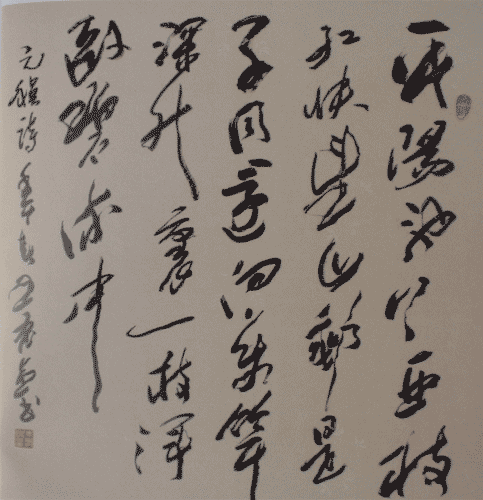 平陽池上亞枝
紅悵望山郵是
事同還向萬竿
深竹裏一枝渾
卧碧流中
元稹詩